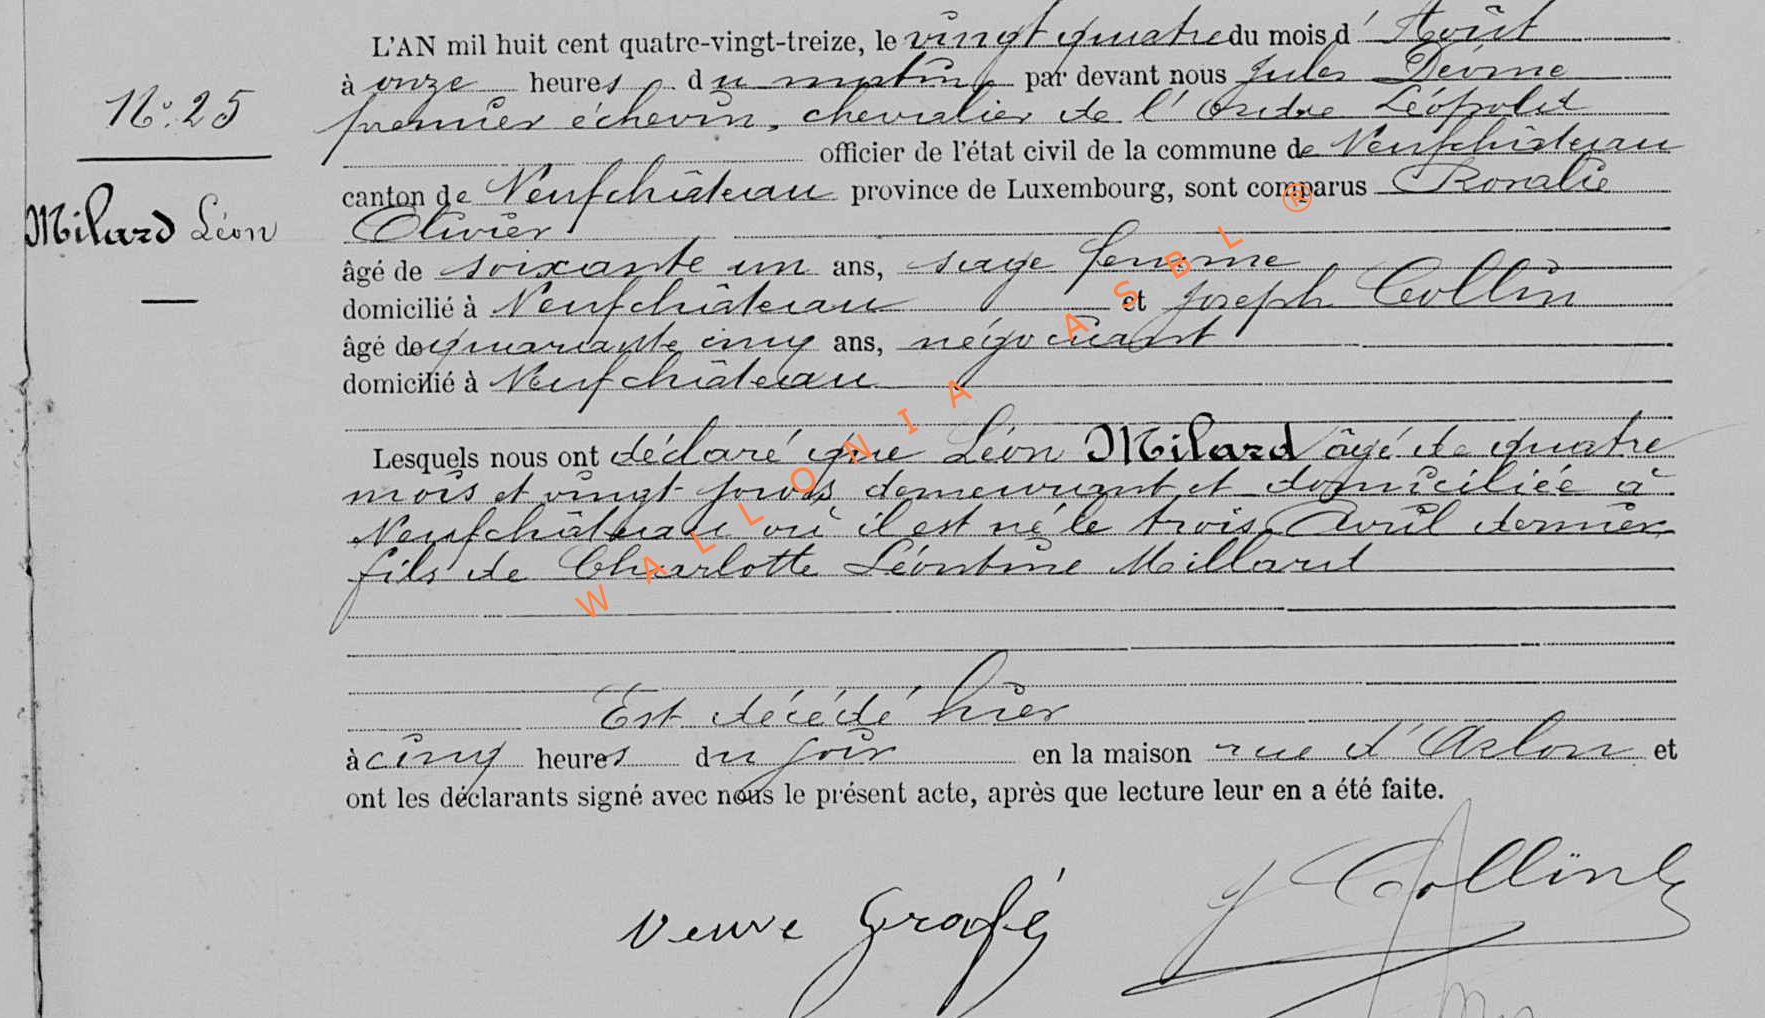 L'AN mil huit cent quatre-vingt-treize, le vingt quatre du mois d' Août
à onze heures du matin par devant nous Jules Devine
N° 25
premier échevin, chevalier de l'Ordre Léopold
officier de l'état civil de la commune de Neufchâteau
canton de Neufchâteau province de Luxembourg, sont comparus Rosalie
Milard Léon
Olivier
âgé de soixante un ans, sage femme
domicilié à Neufchâteau et Joseph Collin
âgé de quarante cinq ans, négociant
domicilié à Neufchâteau
Lesquels nous ont déclaré que Léon Milard âgé de quatre
mois et vingt jours demeurant et domiciliée à
Neufchâteau où il est né le trois Avril dernier
fils de Charlotte Léontine Millard
Est décédé hier
à cinq heures du soir en la maison rue d'Arlon et
ont les déclarants signé avec nous le présent acte, après que lecture leur en a été faite.
veuve Grafé J Collin
WALLONIA ASBL ®